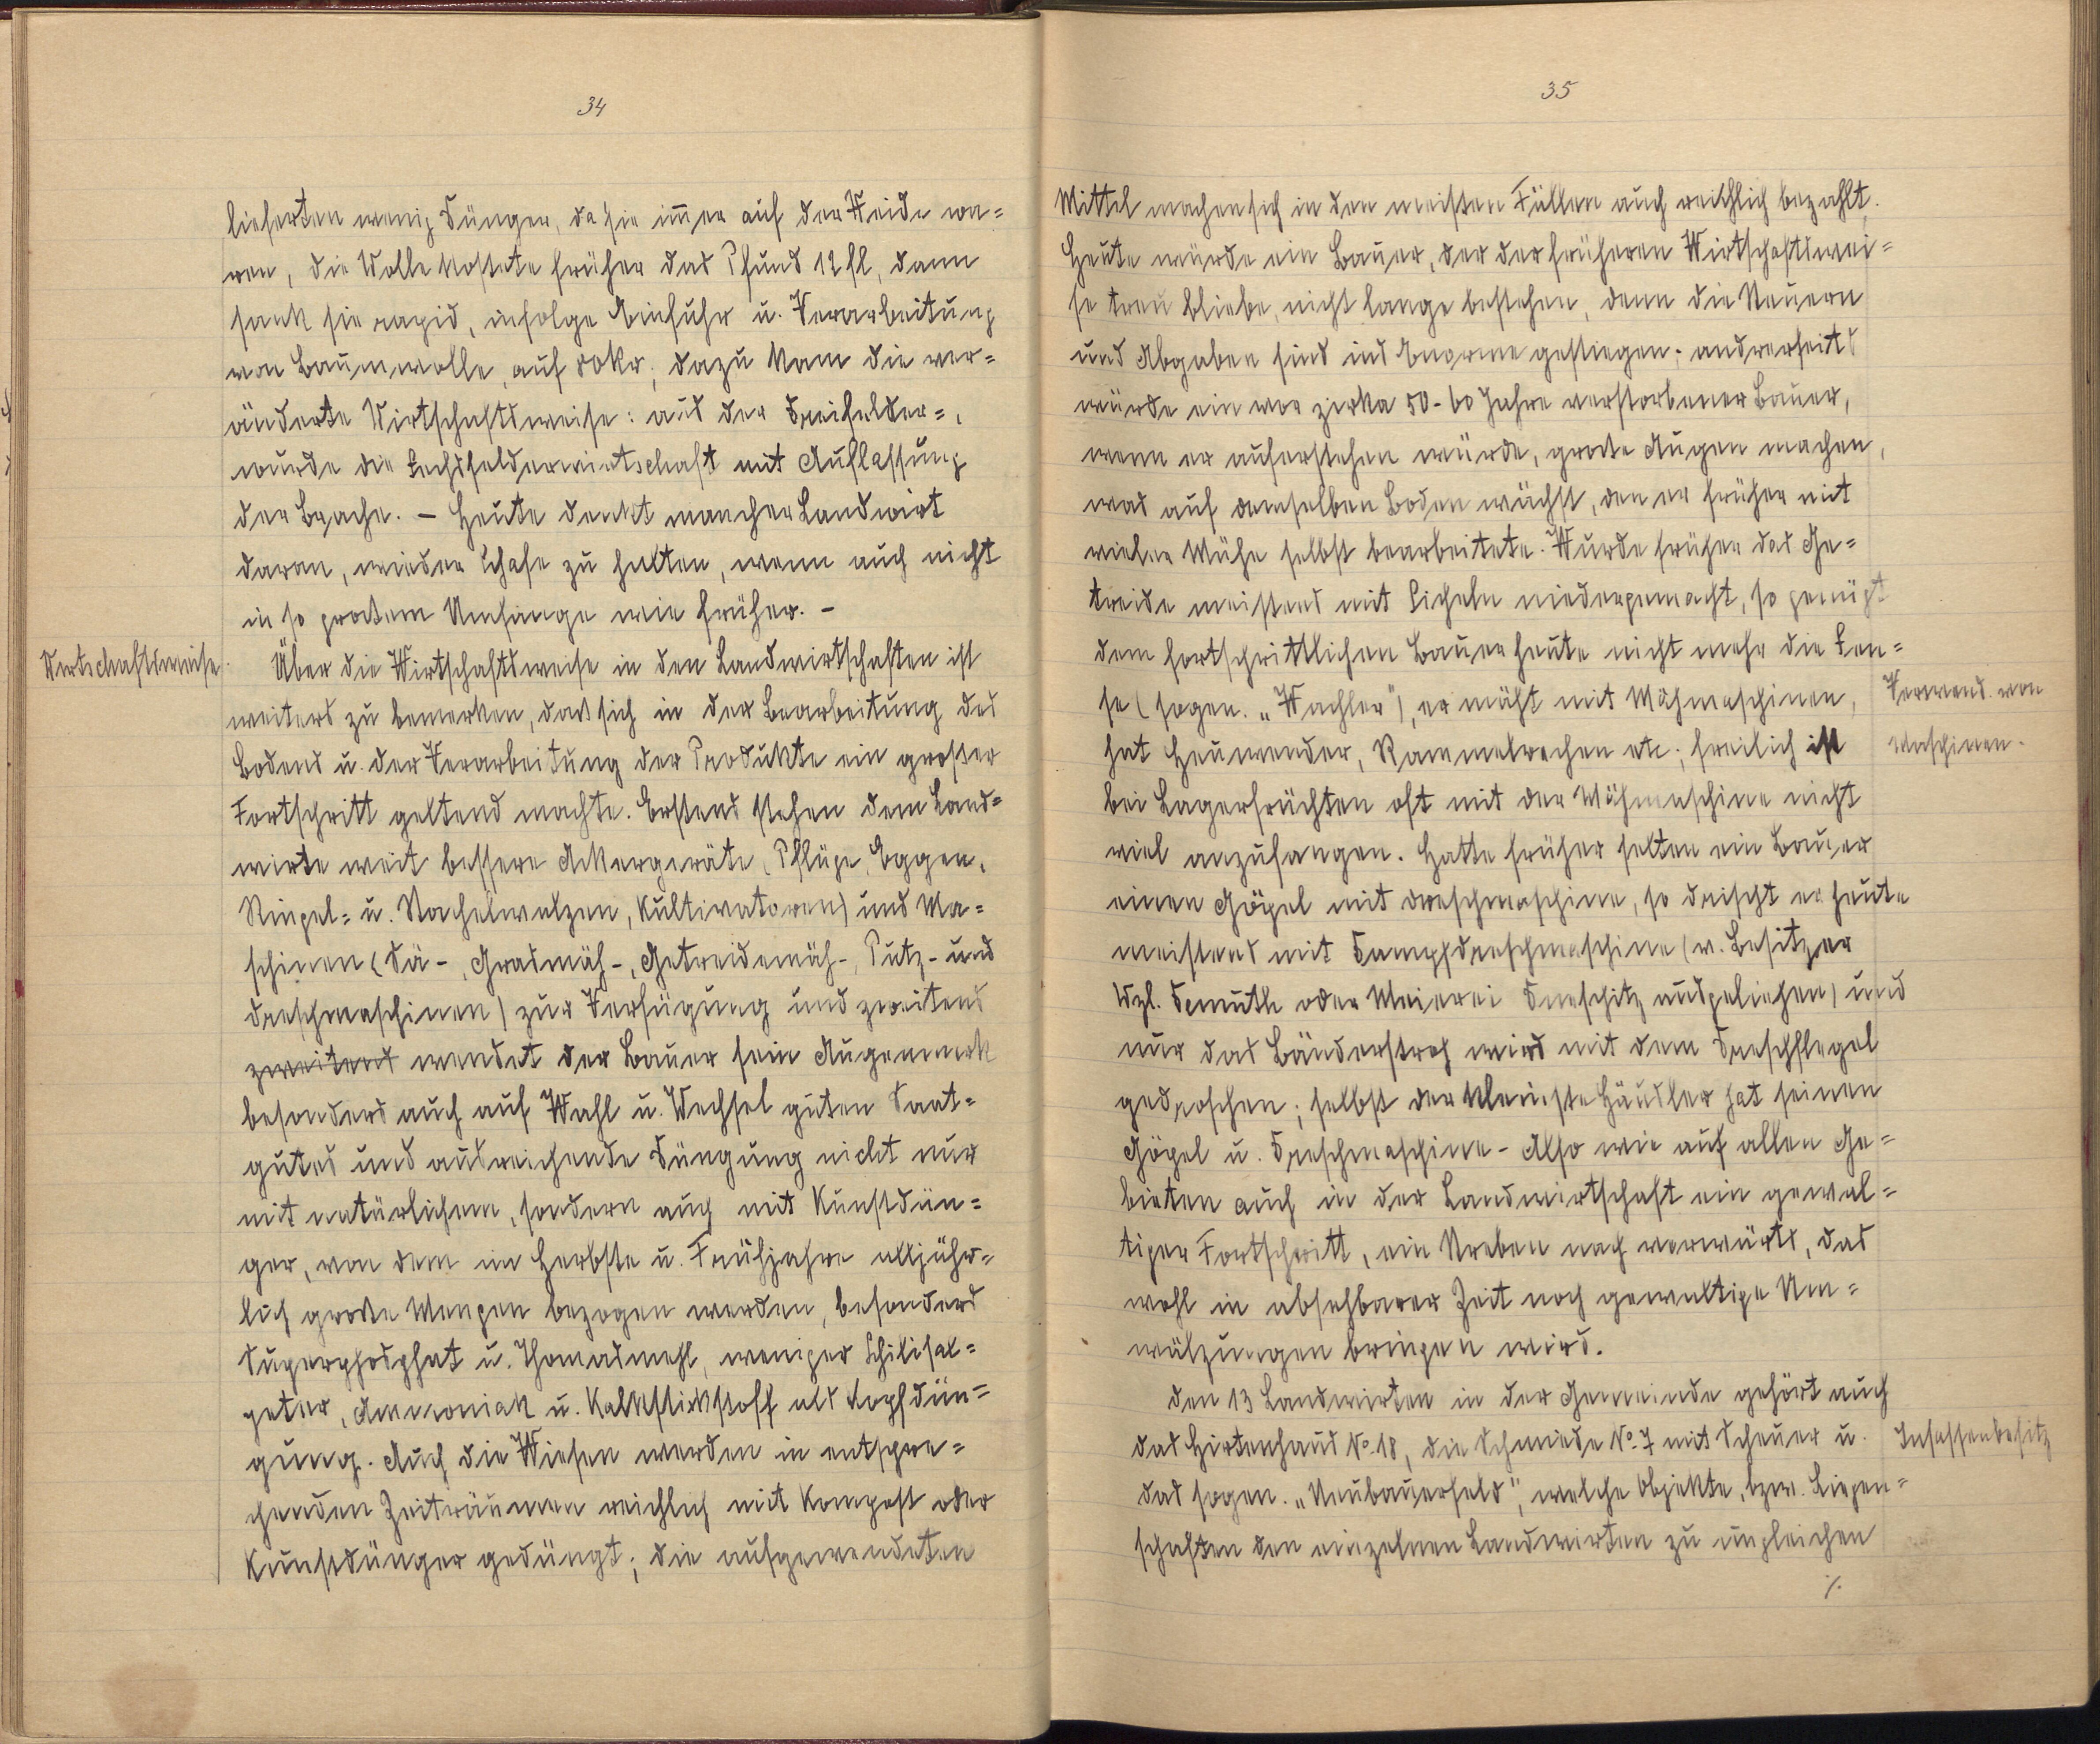 34
lieferten wenig Dünger, da sie im̅er auf der Weide wa=
ren, die Wolle kostete früher das Pfund 12 fl, dann
sank sie rapid, infolge Einfuhr u. Verarbeitung
von Baumwolle, auf 80 Kr; dazu kam die ver=
änderte Wirtschaftsweise: aus der Dreifelder=,
wurde die Sechsfelderwirtschaft mit Auflassung
der Brache. – Heute denkt mancher Landwirt
daran, wieder Schafe zu halten, wenn auch nicht
in so großem Umfange wie früher. –
Wirtschaftsweise.
Über die Wirtschaftsweise in den Landwirtschaften ist
weiters zu bemerken, daß sich in der Bearbeitung des
Bodens u. der Verarbeitung der Produkte ein grosser
Fortschritt geltend machte. Erstens stehen dem Land=
wirte weit bessere Ackergeräte (Pflüge, Eggen,
Ringel= u. Stachelwalzen, Kultivatoren) und Ma=
schinen (Sä-, Grasmäh-, Getreidemäh-, Putz- und
Dreschmaschinen) zur Verfügung und zweitens
zweitens wendet der Bauer sein Augenmerk
besonders auch auf Wahl u. Wechsel guten Saat=
gutes und ausreichende Düngung nicht nur
mit natürlichem, sondern auch mit Kunstdün=
ger, von dem im Herbste u. Frühjahre alljähr=
lich große Mengen bezogen werden, besonders
Superphosphat u. Thomasmehl, weniger Chilisal=
peter, Ammoniak u. Kalkstickstoff als Kopfdün=
gung. Auch die Wiesen werden in entspre=
chenden Zeiträumen reichlich mit Kompost oder
Kunstdünger gedüngt; die aufgewendeten
35
Mittel machen sich in den meisten Fällen auch reichlich bezahlt.
Heute würde ein Bauer, der der früheren Wirtschaftswei=
se treu bliebe, nicht lange bestehen, denn die Steuern
und Abgaben sind ins Enorme gestiegen; andrerseits
würde ein vor zirka 50-60 Jahre verstorbener Bauer,
wenn er auferstehen würde, große Augen machen,
was auf demselben Boden wächst, den er früher mit
vieler Mühe selbst bearbeitete. Wurde früher das Ge=
treide meistens mit Sicheln niedergemacht, so genügt
dem fortschrittlichen Bauer heute nicht mehr die Sen=
se (sogen. „Wachler"), er mäht mit Mähmaschinen,
Verwend. von
hat Heuwender, Rammelrechen etc; freilich ist
Maschinen.
bei Lagerfrüchten oft mit der Mähmaschine nicht
viel anzufangen. Hatte früher selten ein Bauer
einen Göpel mit Dreschmaschine, so drischt er heute
meistens mit Dampfdreschmaschine (v. Besitzer
Wzl. Demuth oder Meierei ausgeliehen) und
nur das Bänderstroh wird mit dem Dreschflegel
gedroschen; selbst der kleinste Häusler hat seinen
Göpel u. Dreschmaschine - Also wie auf allen Ge=
bieten auch in der Landwirtschaft ein gewal=
tiger Fortschritt, ein Streben nach vorwärts, das
wohl in absehbarer Zeit noch gewaltige Um=
wälzungen bringen wird.
Den 13 Landwirten in der Gemeinde gehört auch
das Hirtenhaus No. 18, die Schmiede No. 7 mit Scheuer u.
Insassenbesitz
das sogen. „Neubauerfeld", welche Objekte, bzw. Liegen=
schaften den einzelnen Landwirten zu ungleichen
./.